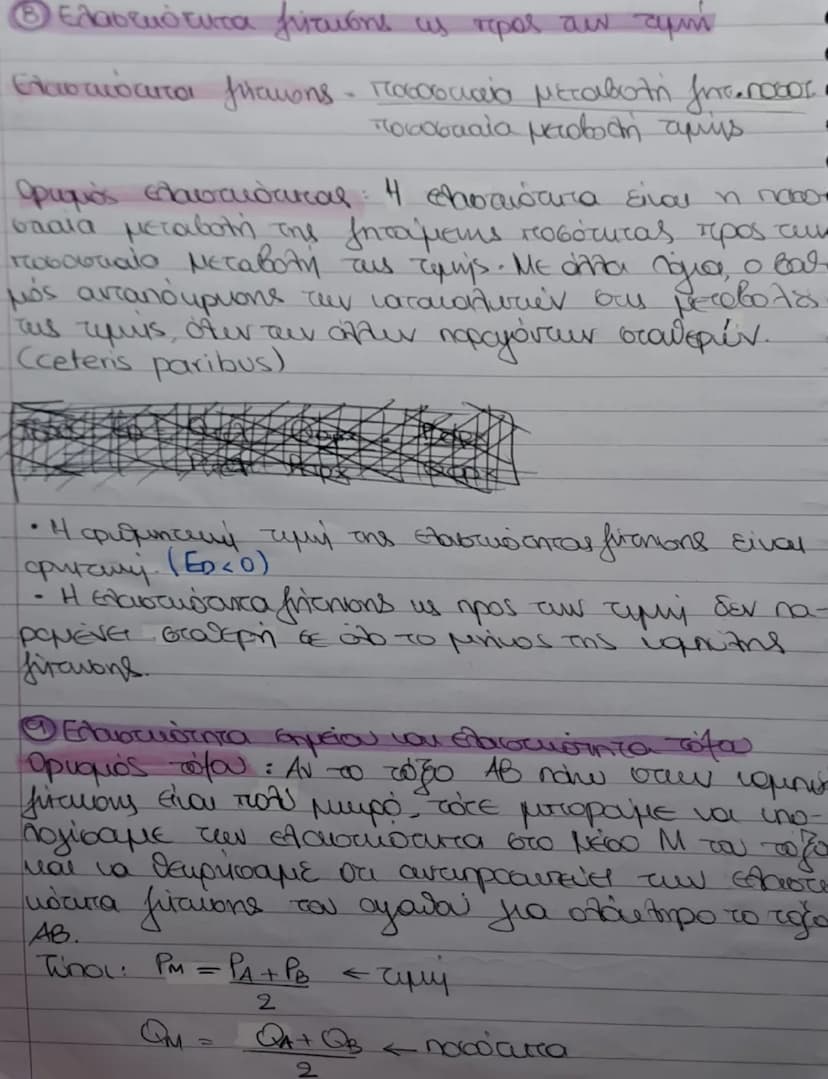 ⑧ Ελαστικότητα ζήτησης ως προς την τιμή
Ελαστικότητα ζήτησης = ποσοστιαία μεταβολή ζητ. ποσοτ.
ποσοστιαία μεταβολή τιμής
Ορισμός ελαστικότητας: Η ελαστικότητα είναι η ποσο-
στιαία μεταβολή της ζητούμενης ποσότητας προς την
ποσοστιαία μεταβολή της τιμής. Με άλλα λόγια, ο βαθ-
μός ανταπόκρισης των καταναλωτών στις μεταβολές
της τιμής, όλων των άλλων παραγόντων σταθερών.
(ceteris paribus)
· Η αριθμητική τιμή της ελαστικότητας ζήτησης είναι
αρνητική. (ED < 0)
· Η ελαστικότητα ζήτησης ως προς την τιμή δεν πα-
ραμένει σταθερή σε όλο το μήκος της καμπύλης
ζήτησης.
⑨ Ελαστικότητα σημείου και ελαστικότητα τόξου
Ορισμός τόξου: Αν το τόξο ΑΒ πάνω στην καμπύλη
ζήτησης είναι πολύ μικρό, τότε μπορούμε να υπο-
λογίσουμε την ελαστικότητα στο μέσο Μ του τόξου
και να θεωρήσουμε ότι αντιπροσωπεύει την ελαστι-
κότητα ζήτησης του αγαθού για ολόκληρο το τόξο
ΑΒ.
Τύποι: PM = PA + PB ← τιμή
2
QM = QA + QB ← ποσότητα
2